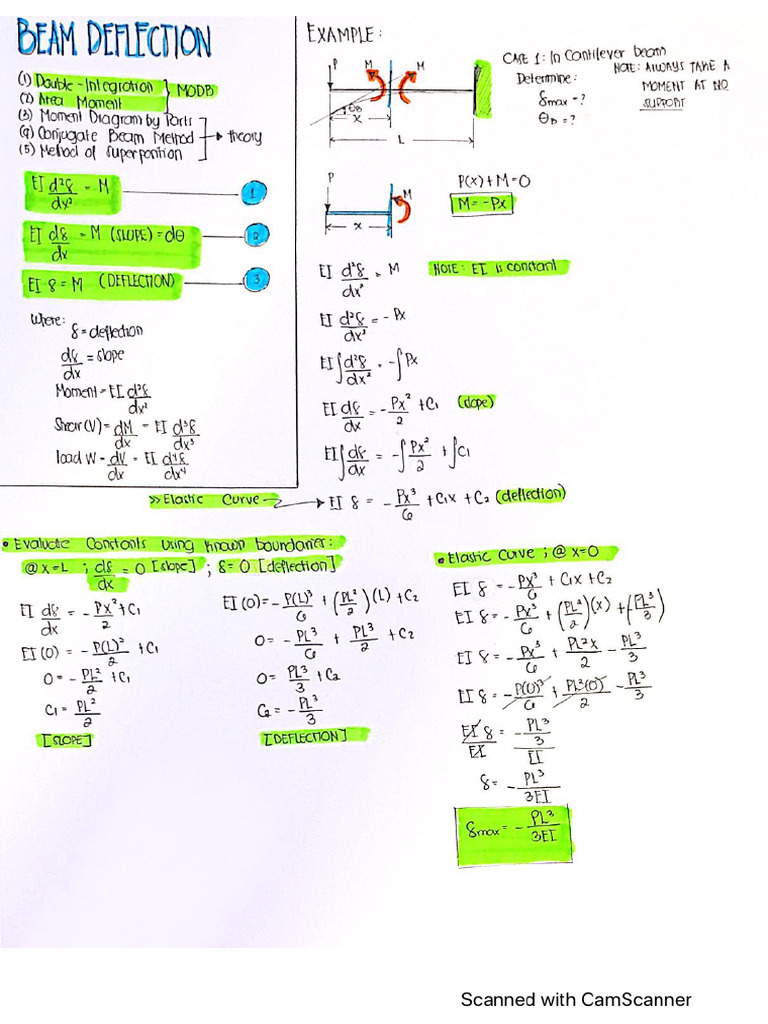 BEAM DEFLECTION
(1) Double-Integration
(2) Area Moment
} MODB
(3) Moment Diagram by Parts
(4) Conjugate Beam Method
(5) Method of Superposition
→ theory
EI d²δ/dx² = M ① 
EI dδ/dx = M (SLOPE) = dθ ②
EI δ = M (DEFLECTION) ③
Where:
δ = deflection
dδ/dx = slope
Moment = EI d²δ/dx²
Shear (V) = dM/dx = EI d³δ/dx³
load W = dV/dx = EI d⁴δ/dx⁴
EXAMPLE:
P M M
θB
x
L
CASE 1: In Cantilever beam
Determine:
δmax = ?
θB = ?
NOTE: ALWAYS TAKE A
MOMENT AT NO
SUPPORT
P M
x
P(x) + M = 0
M = -Px
EI d²δ/dx² = M
NOTE: EI is constant
EI d²δ/dx² = - Px
EI ∫ d²δ/dx² = - ∫ Px
EI dδ/dx = - Px²/2 + C1 (slope)
EI ∫ dδ/dx = - ∫ Px²/2 + ∫ C1
>> Elastic Curve → EI δ = - Px³/6 + C1x + C2 (deflection)
• Evaluate Constants using known boundaries:
@ x=L ; dδ/dx = 0 [slope] ; δ = 0 [deflection]
EI dδ/dx = - Px²/2 + C1
EI (0) = - P(L)²/2 + C1
0 = - PL²/2 + C1
C1 = PL²/2
[SLOPE]
EI (0) = - P(L)³/6 + (PL²/2)(L) + C2
0 = - PL³/6 + PL³/2 + C2
0 = PL³/3 + C2
C2 = - PL³/3
[DEFLECTION]
• Elastic Curve ; @ x=0
EI δ = - Px³/6 + C1x + C2
EI δ = - Px³/6 + (PL²/2)(x) + (PL³/3)
EI δ = - Px³/6 + PL²x/2 - PL³/3
EI δ = - P(0)³/6 + PL²(0)/2 - PL³/3
EI δ/EI = - PL³/3/EI
δ = - PL³/3EI
δmax = - PL³/3EI
Scanned with CamScanner